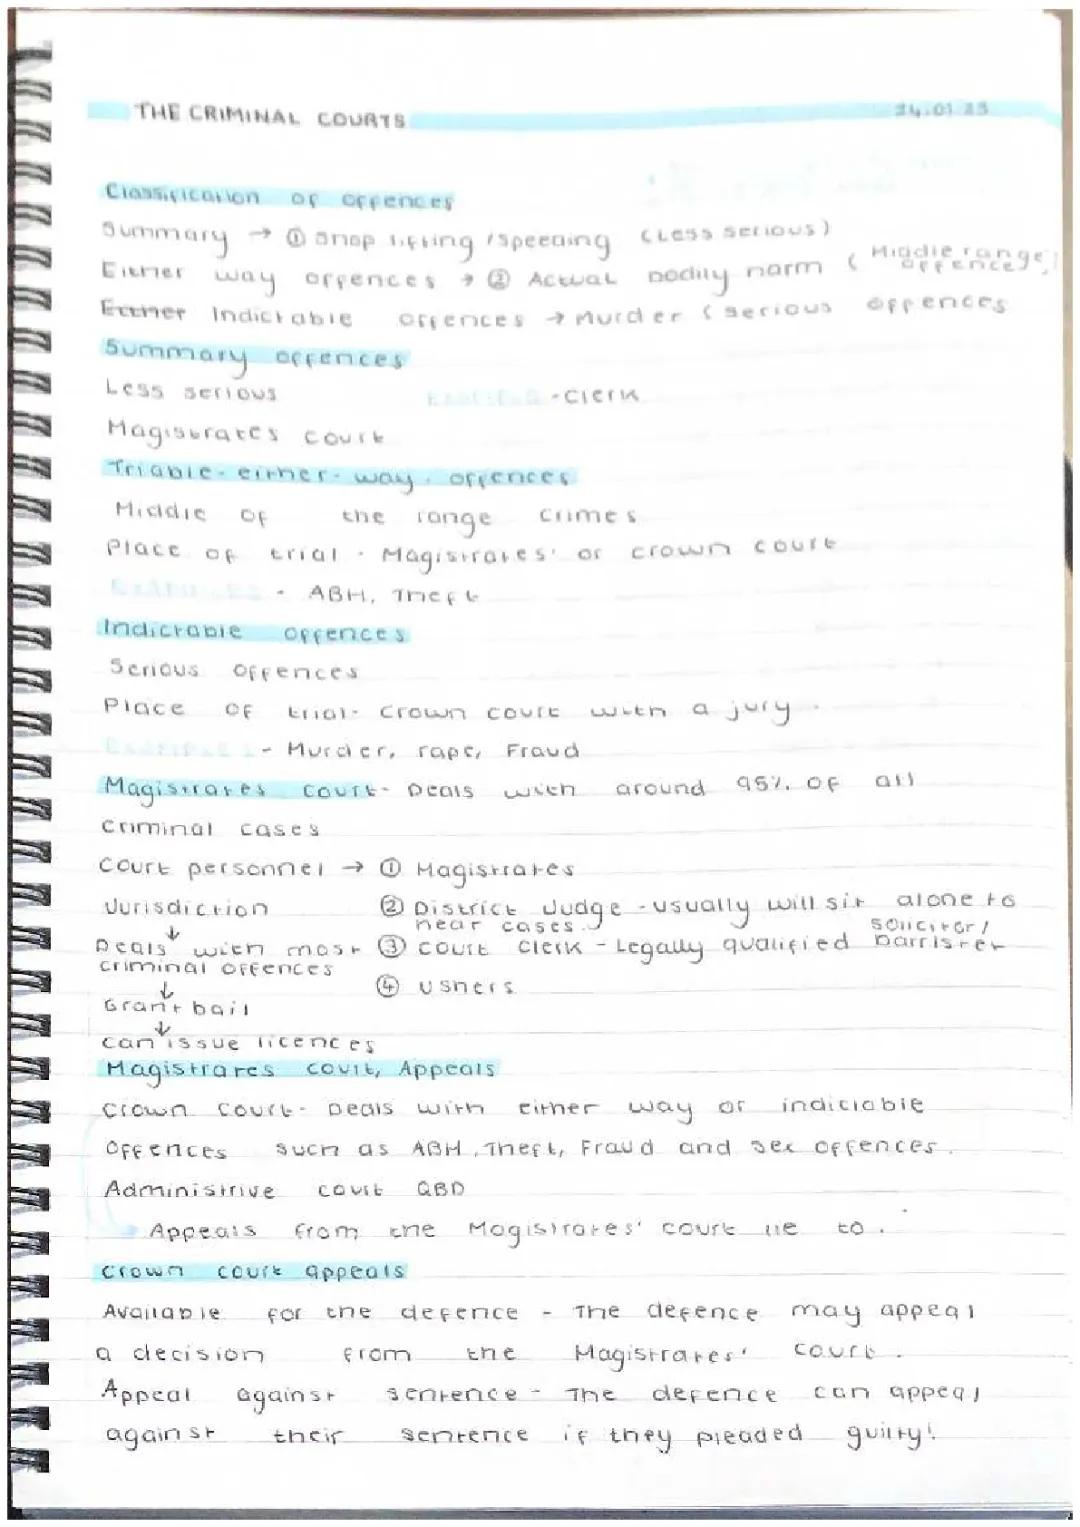 THE CRIMINAL COURTS 24.01.23
Classification of offences
Summary → ① Shop lifting / Speeding (Less serious)
Either way offences → ② Actual bodily harm ( Middle range offences)
Either Indictable offences → Murder ( Serious offences
Summary offences
Less serious - Clerk
Magistrates court
Triable-either-way. offences
Middle of the range crimes
Place of trial - Magistrates' or crown court
EXAMPLES - ABH, Theft
Indictable offences
Serious offences
Place of trial- Crown court with a jury.
- Murder, rape, Fraud
Magistrates court- Deals with around 95% of all
criminal cases
Court personnel → ① Magistrates
Jurisdiction ② District Judge - usually will sit alone to
hear cases.
↓
Deals with most ③ court clerk - Legally qualified solicitor/ barrister
criminal offences
↓ ④ ushers
Grant bail
↓
can issue licences
Magistrates court, Appeals
Crown Court- Deals with either way or indictable
Offences such as ABH, Theft, Fraud and sex offences.
Administrive court QBD
Appeals from the Magistrates' court lie to.
Crown court appeals
Available for the defence - The defence may appeal
a decision from the Magistrates' court.
Appeal against sentence - The defence can appeal
against their sentence if they pleaded guilty!